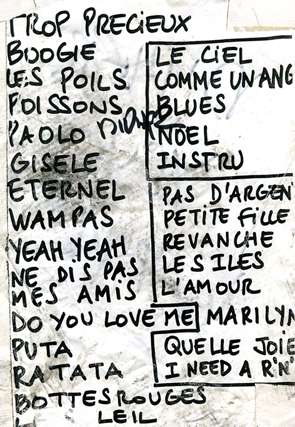 TROP PRECIEUX
BOOGIE
LES POILS
POISSONS
PAOLO
GISELE
ETERNEL
WAMPAS
YEAH YEAH
NE DIS PAS
MES AMIS
DO YOU LOVE ME
PUTA
RATATA
BOTTES ROUGES
LE CIEL
COMME UN ANG
BLUES
NOEL
INSTRU
PAS D'ARGEN
PETITE FILLE
REVANCHE
LES ILES
L'AMOUR
MARILYN
QUELLE JOIE
I NEED A R'N'
LEIL